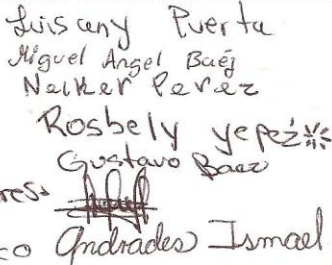 Luisany Puerta
Miguel Angel Baéz
Neiker Perez
Rosbely yepez
Gustavo Baez
res
co Andrades Ismael